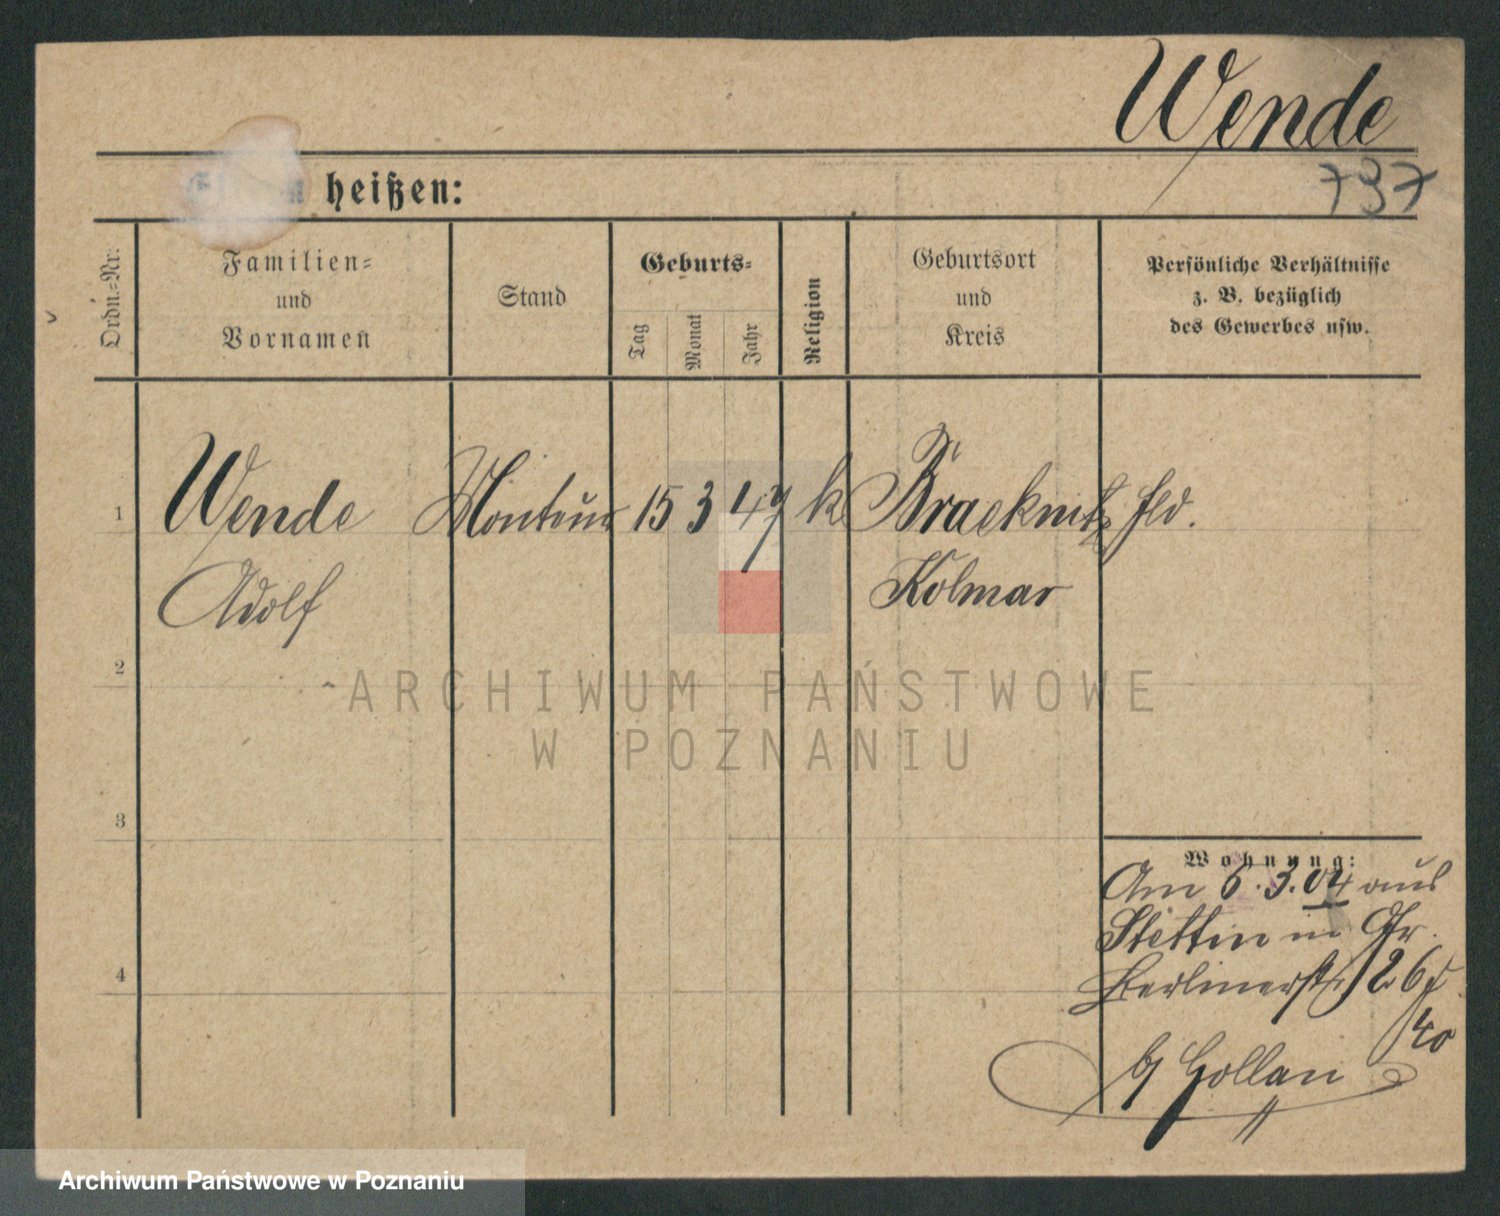 Wende
737
heißen:
Ordn.-Nr.
Familien-
und
Vornamen
Stand
Geburts-
Tag
Monat
Jahr
Religion
Geburtsort
und
Kreis
Persönliche Verhältnisse
z. B. bezüglich
des Gewerbes usw.
1 Wende Monteur 15 3 47 k Braeknitz fld.
Adolf Kolmar
2
3
4
Wohnung:
Am 6.3.04 aus
Stettin in Gr.
Berlinerstr. 26
40
b/ Gollan
ARCHIWUM PAŃSTWOWE
W POZNANIU
Archiwum Państwowe w Poznaniu